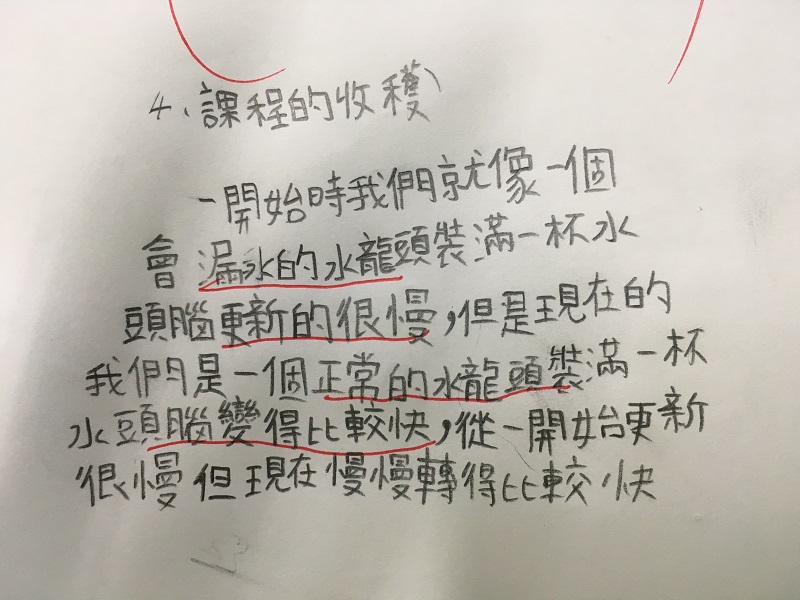 4、課程的收穫
一開始時我們就像一個
會漏水的水龍頭裝滿一杯水
頭腦更新的很慢,但是現在的
我們是一個正常的水龍頭裝滿一杯
水頭腦變得比較快,從一開始更新
很慢但現在慢慢轉得比較快